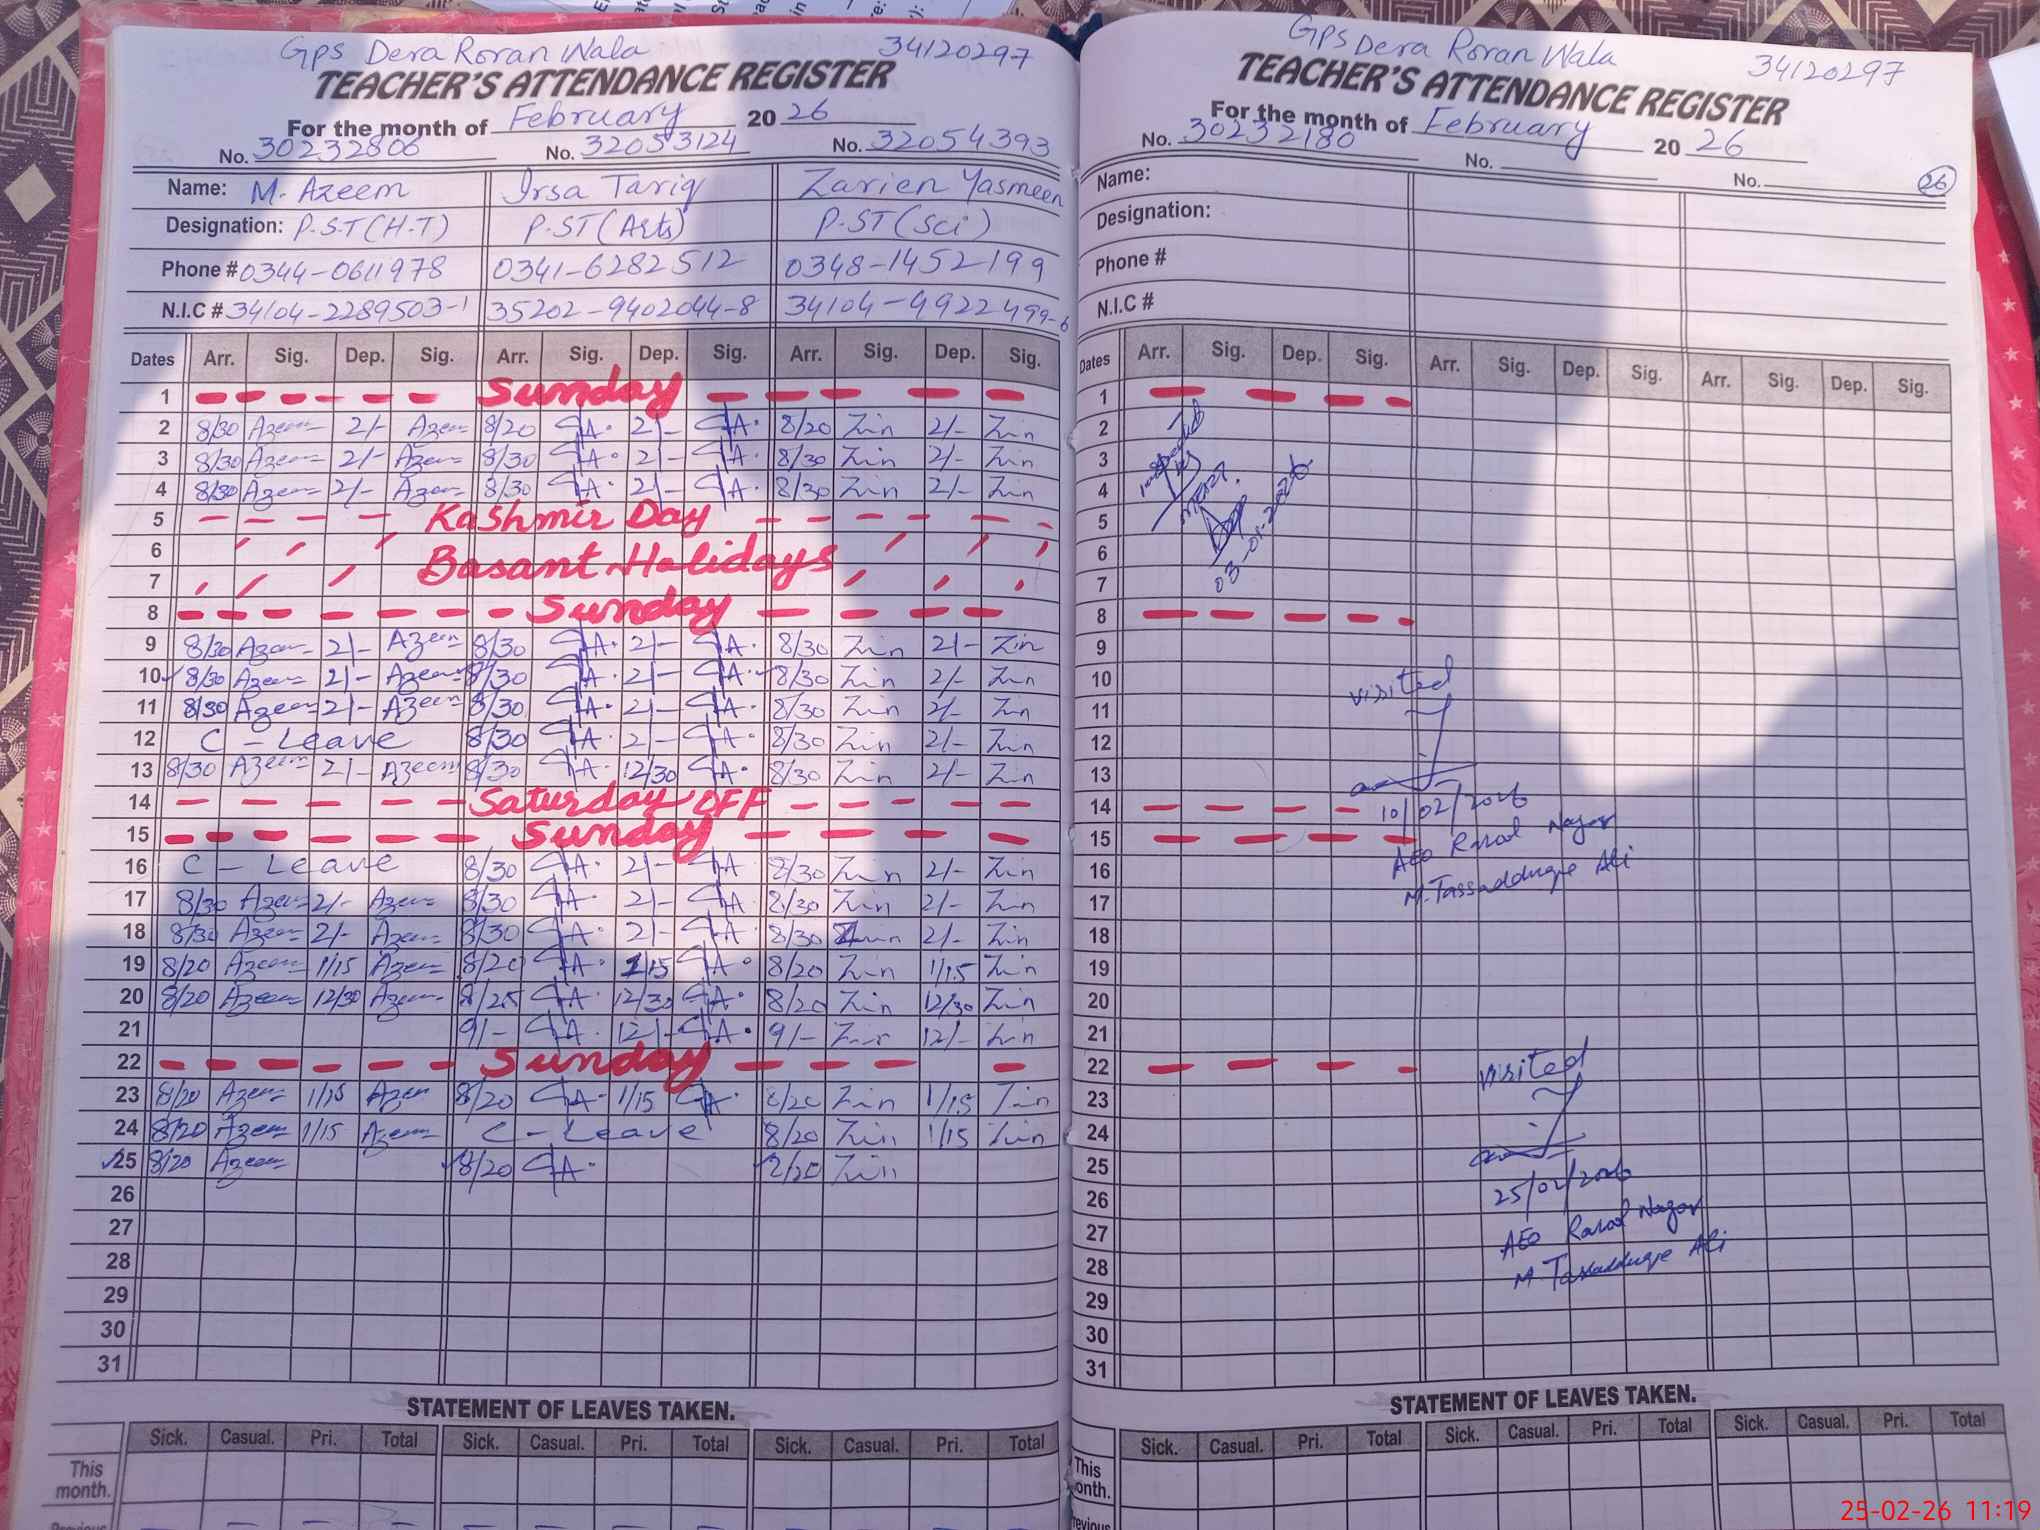 Gps Dera Roran Wala 34120297
TEACHER'S ATTENDANCE REGISTER
For the month of February 2026
No. 30232806 No. 32053124 No. 32054393
Name: M. Azeem Irsa Tariq Zarien Yasmeen
Designation: P.S.T (H.T) P.ST (Arts) P.ST (Sci)
Phone # 0344-0611978 0341-6282512 0348-1452199
N.I.C # 34104-2289503-1 35202-9402044-8 34104-9922499-6
Dates Arr. Sig. Dep. Sig. Arr. Sig. Dep. Sig. Arr. Sig. Dep. Sig.
1 Sunday
2 8/30 Azeem 2/- Azeem 8/20 A. 2/- A. 8/20 Zin 2/- Zin
3 8/30 Azeem 2/- Azeem 8/30 A. 2/- A. 8/30 Zin 2/- Zin
4 8/30 Azeem 2/- Azeem 8/30 A. 2/- A. 8/30 Zin 2/- Zin
5 Kashmir Day
6 Basant Holidays
7
8 Sunday
9 8/30 Azeem 2/- Azeem 8/30 A. 2/- A. 8/30 Zin 2/- Zin
10 8/30 Azeem 2/- Azeem 8/30 A. 2/- A. 8/30 Zin 2/- Zin
11 8/30 Azeem 2/- Azeem 8/30 A. 2/- A. 8/30 Zin 2/- Zin
12 C - Leave 8/30 A. 2/- A. 8/30 Zin 2/- Zin
13 8/30 Azeem 2/- Azeem 8/30 A. 12/30 A. 8/30 Zin 2/- Zin
14 Saturday OFF
15 Sunday
16 C - Leave 8/30 A. 2/- A 8/30 Zin 2/- Zin
17 8/30 Azeem 2/- Azeem 8/30 A. 2/- A 8/30 Zin 2/- Zin
18 8/30 Azeem 2/- Azeem 8/30 A. 2/- A. 8/30 Zin 2/- Zin
19 8/20 Azeem 1/15 Azeem 8/20 A. 1/15 A. 8/20 Zin 1/15 Zin
20 8/20 Azeem 12/30 Azeem 8/25 A. 12/30 A. 8/20 Zin 12/30 Zin
21 9/- A. 12/- A. 9/- Zin 12/- Zin
22 Sunday
23 8/20 Azeem 1/15 Azeem 8/20 A. 1/15 A. 8/20 Zin 1/15 Zin
24 8/20 Azeem 1/15 Azeem C - Leave 8/20 Zin 1/15 Zin
25 8/20 Azeem 8/20 A. 8/20 Zin
26
27
28
29
30
31
STATEMENT OF LEAVES TAKEN.
Sick. Casual. Pri. Total Sick. Casual. Pri. Total Sick. Casual. Pri. Total
This
month.
Gps Dera Roran Wala 34120297
TEACHER'S ATTENDANCE REGISTER
For the month of February 2026
No. 30232180 No. No. 26
Name:
Designation:
Phone #
N.I.C #
Dates Arr. Sig. Dep. Sig. Arr. Sig. Dep. Sig. Arr. Sig. Dep. Sig.
1
2
3
4
5
6
7
8
9
10
11
12
13
14
15
16
17
18
19
20
21
22
23
24
25
26
27
28
29
30
31
visited
10/02/2026
AEO Rasool Nagar
M. Tassadduqe Ali
visited
25/02/2026
AEO Rasool Nagar
M. Tassadduqe Ali
STATEMENT OF LEAVES TAKEN.
Sick. Casual. Pri. Total Sick. Casual. Pri. Total Sick. Casual. Pri. Total
This
month.
25-02-26 11:19